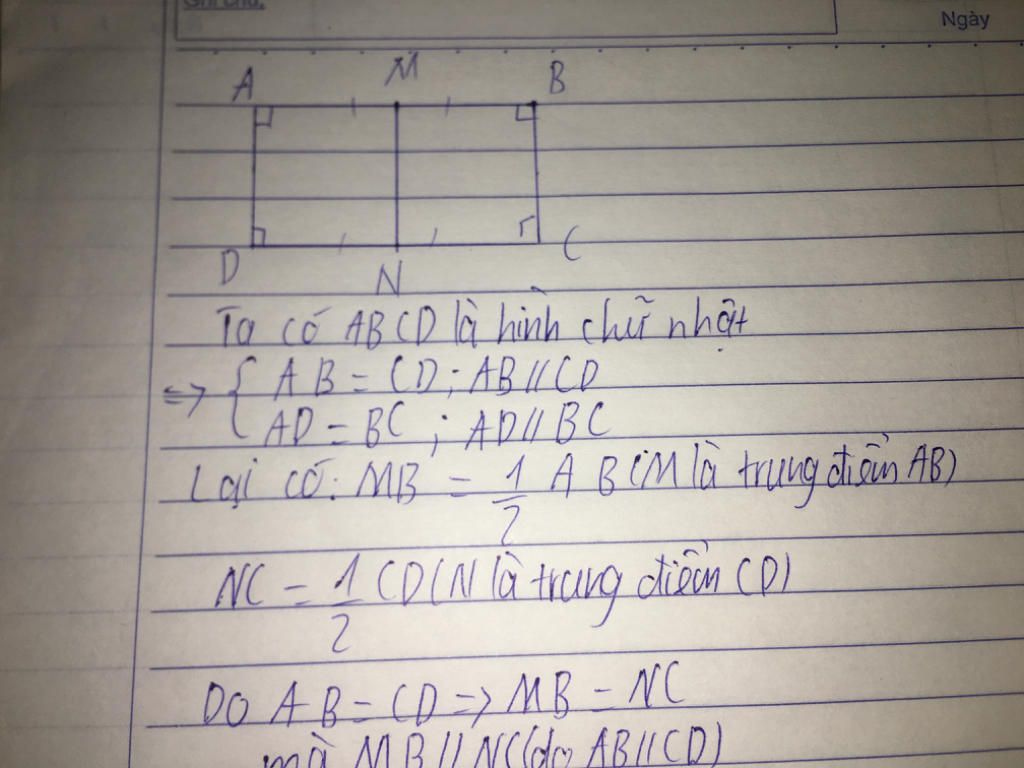 Ghi chú:
Ngày
A M B
D N C
Ta có ABCD là hình chữ nhật
=> { AB = CD ; AB // CD
AD = BC ; AD // BC
Lại có: MB = 1/2 AB (M là trung điểm AB)
NC = 1/2 CD (N là trung điểm CD)
Do AB = CD => MB = NC
mà MB // NC (do AB // CD)